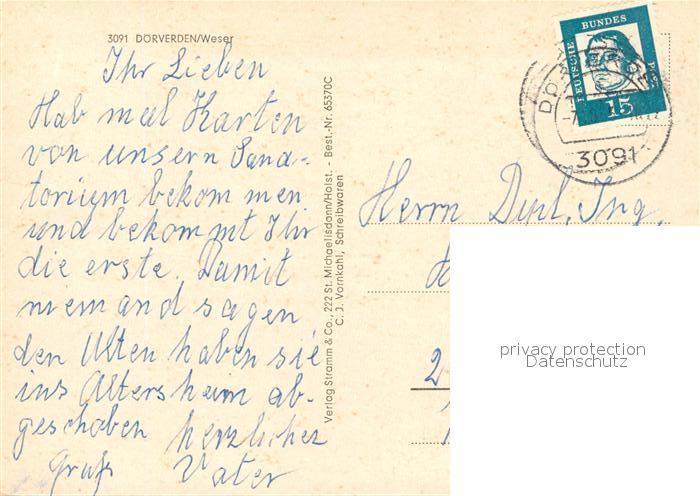 3091 DÖRVERDEN/Weser
Ihr Lieben
Hab mal Karten
von unsern Sana-
torium bekommen
und bekommt Ihr
die erste. Damit
niemand sagen
den Alten haben sie
ins Altersheim ab-
geschoben herzlicher
Gruß Vater
Verlag Stramm & Co., 222 St. Michaelisdonn/Holst. - Best.-Nr. 65370C
C. J. Vornkahl, Schreibwaren
DEUTSCHE BUNDES POST
15
3091
Herrn Dipl. Ing.
2
privacy protection
Datenschutz